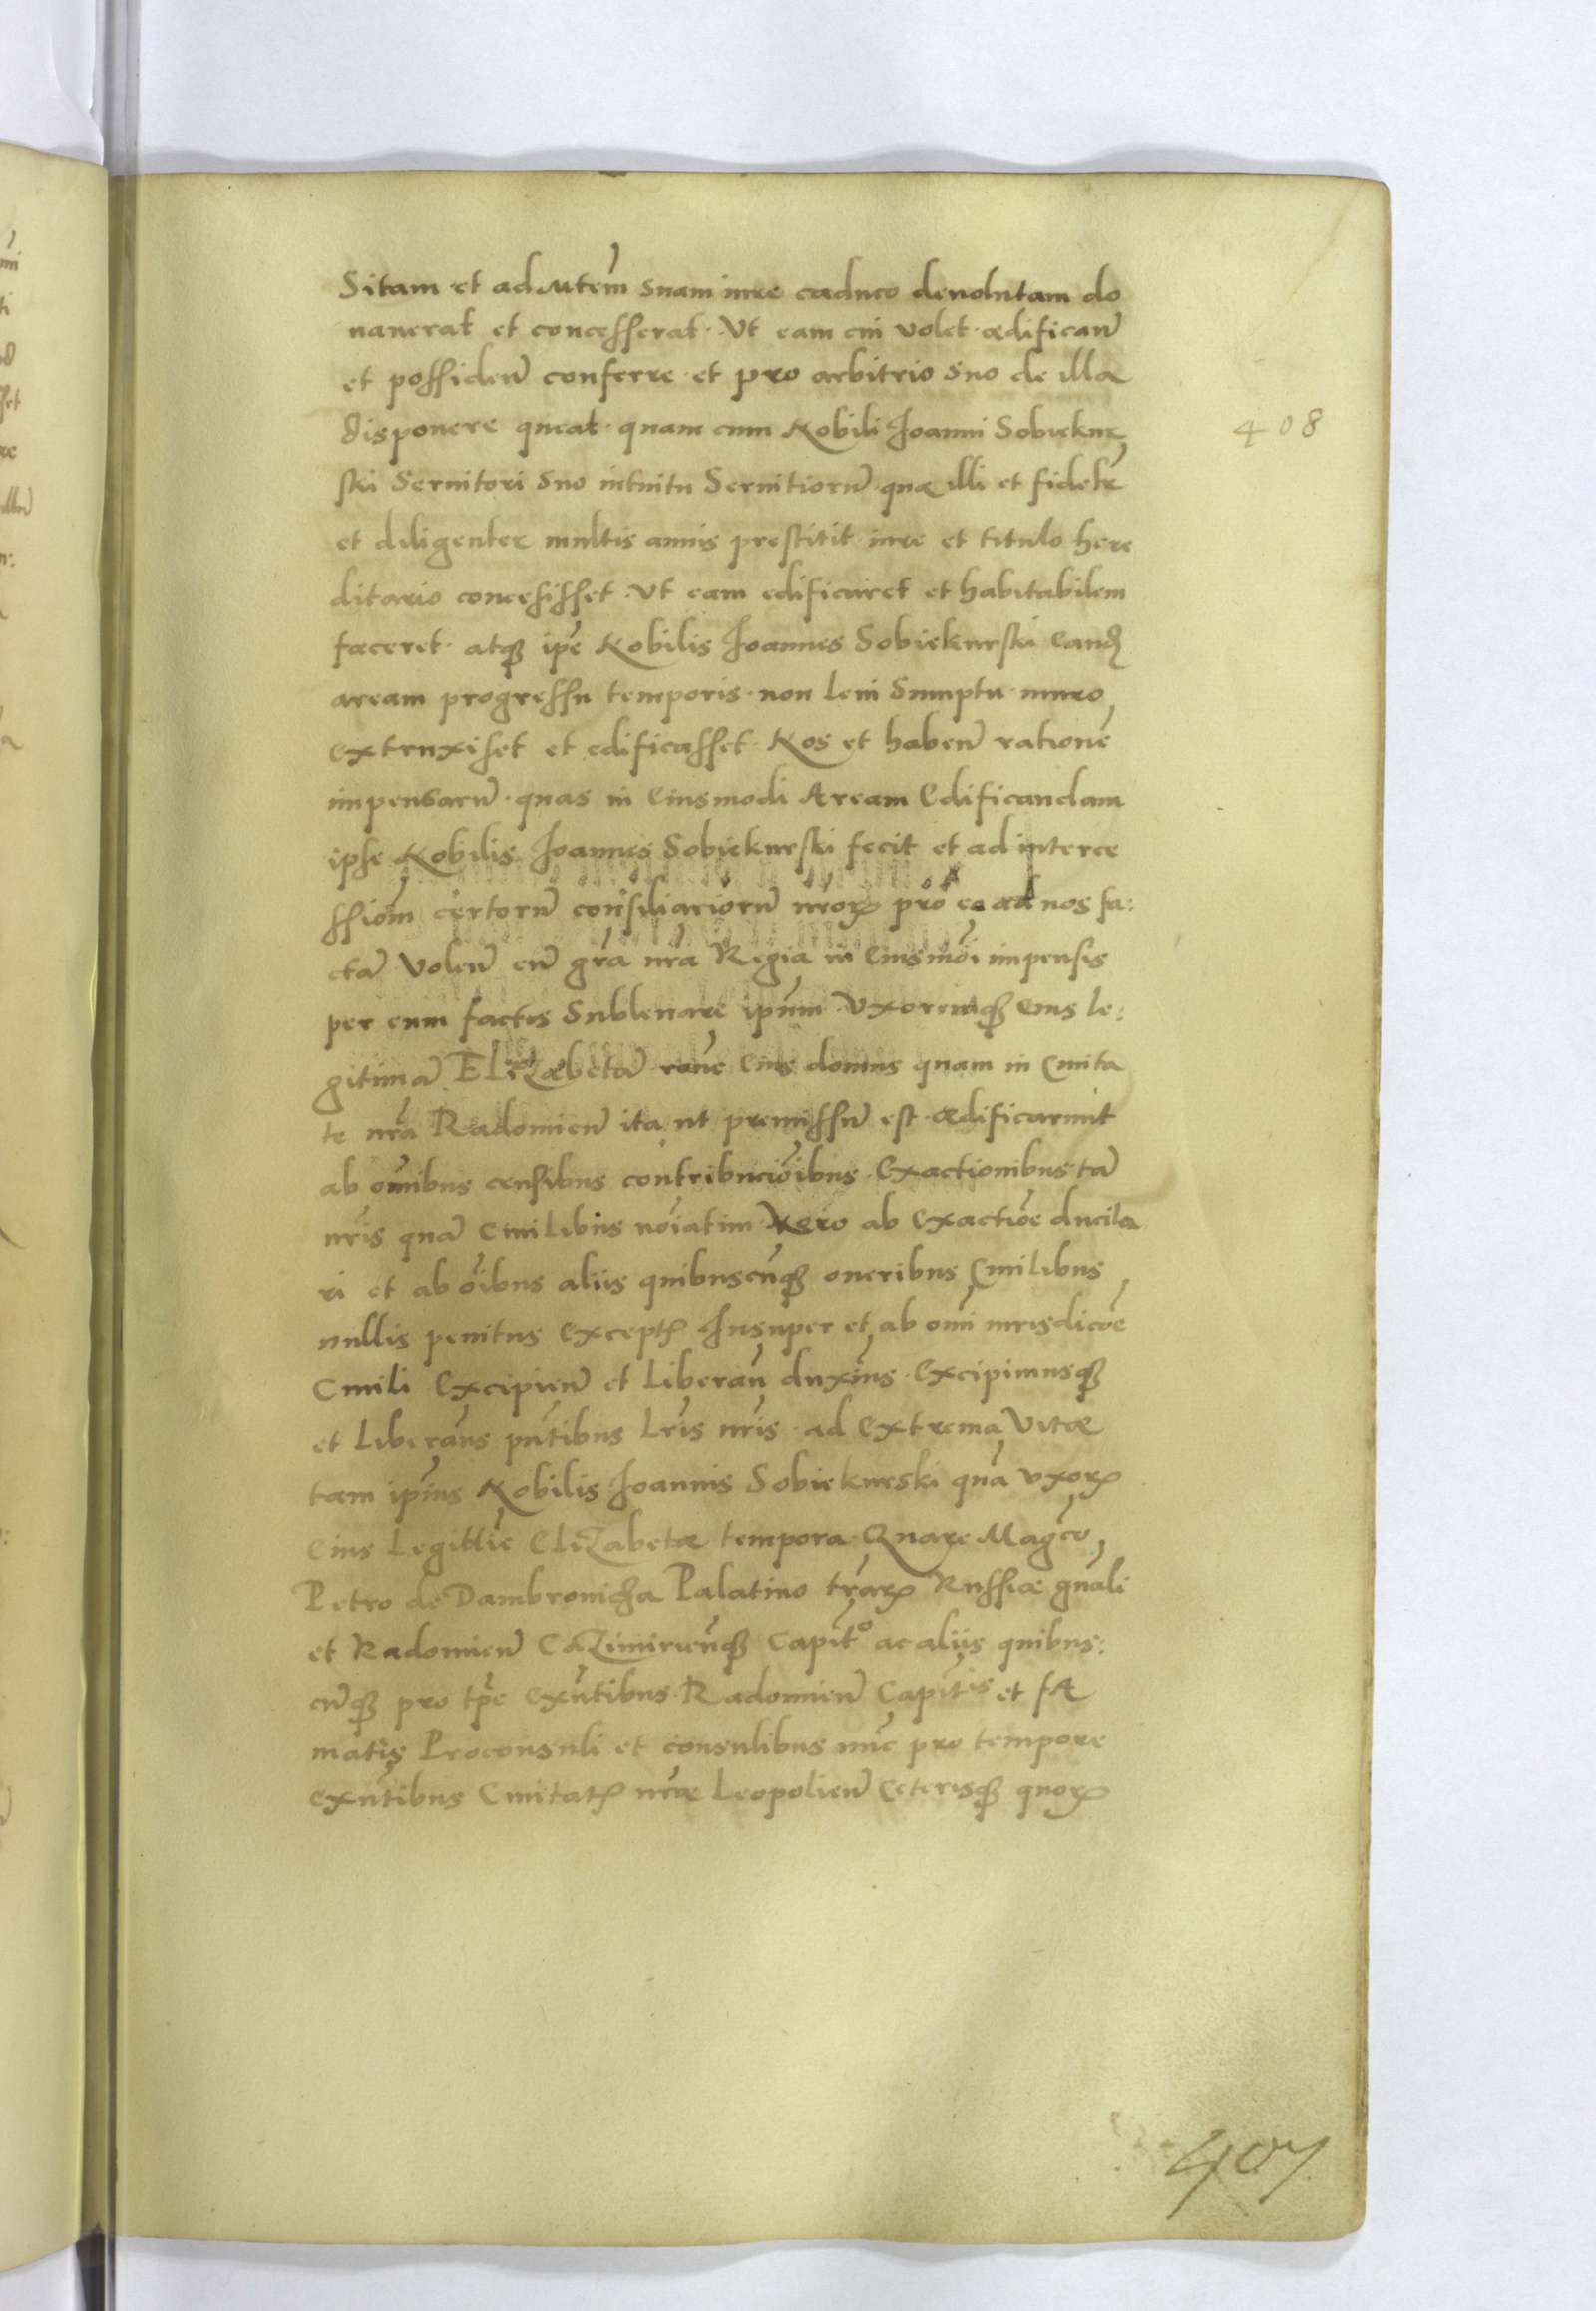 Sitam et ad Mtem suam iure caduco devolutam do
naverat et concesserat. Vt eam cui volet. ædifican̄
et possiden̄ conferre. et pro arbitrio suo de illa
disponere queat. quam cum Nobili Joanni Sobiekur
ski Servitori suo intuitu Servitiorū. quæ illi et fidelr̄
et diligenter multis annis prestitit iure et titulo here
ditario concesisset. Vt eam edificaret et habitabilem
faceret. atqȝ ipē Nobilis Joannes Sobiekurski Eandē
aream progressu temporis. non levi Sumptu. muro
extruxiset et edificasset. Nos et haben̄ rationē
impensarū. quas in Eiusmodi Aream Edificandam
ipse Nobilis Joannes Sobiekurski fecit et ad interce
ssiōm certorū consiliariorū nr̄oꝝ pro eo ad nos fa:
ctā Volen̄ eū gr̄a nr̄a Regia in Eiusmōi impensis
per eum factis Sublevare ipūm Vxoremqȝ eius le:
gitimā Elizabetā rōne Eius domus quam in Civita
te nr̄a Radomien̄ ita ut premissū est. ædificarunt
ab omībus censibus contribuciōibus. Exactionibus tā
nr̄is quā Civilibus nōiatim Vero ab Exactiōe ducila
ri et ab oībus aliis quibuscūqȝ oneribus Civilibus
nullis penitus Exceptꝭ Insuper et ab omī iurisdicōe
Civili Excipien̄ et Liberan̄ duxīus. Excipimusqȝ
et Liberāus pn̄tibus Lr̄is nr̄is. ad Extrema Vitæ
tam ipīus Nobilis Joannis Sobiekurski quā Vxorꝭ
Eius Legittīe Elizabetæ tempora. Quare Magc̄o
Petro de Dambrowicza Palatino tr̄arꝝ Russiæ gn̄ali
et Radomien̄ Cazimirien̄qȝ Capit̄o ac aliis quibus:
cūqȝ pro tp̄e Exn̄tibus. Radomien̄ Capit̄is et fA
matis Proconsuli et consulibus nūc pro tempore
Exn̄tibus Civitatꝭ nr̄æ Leopolien̄ Ceterisqȝ quoꝝ
408
407